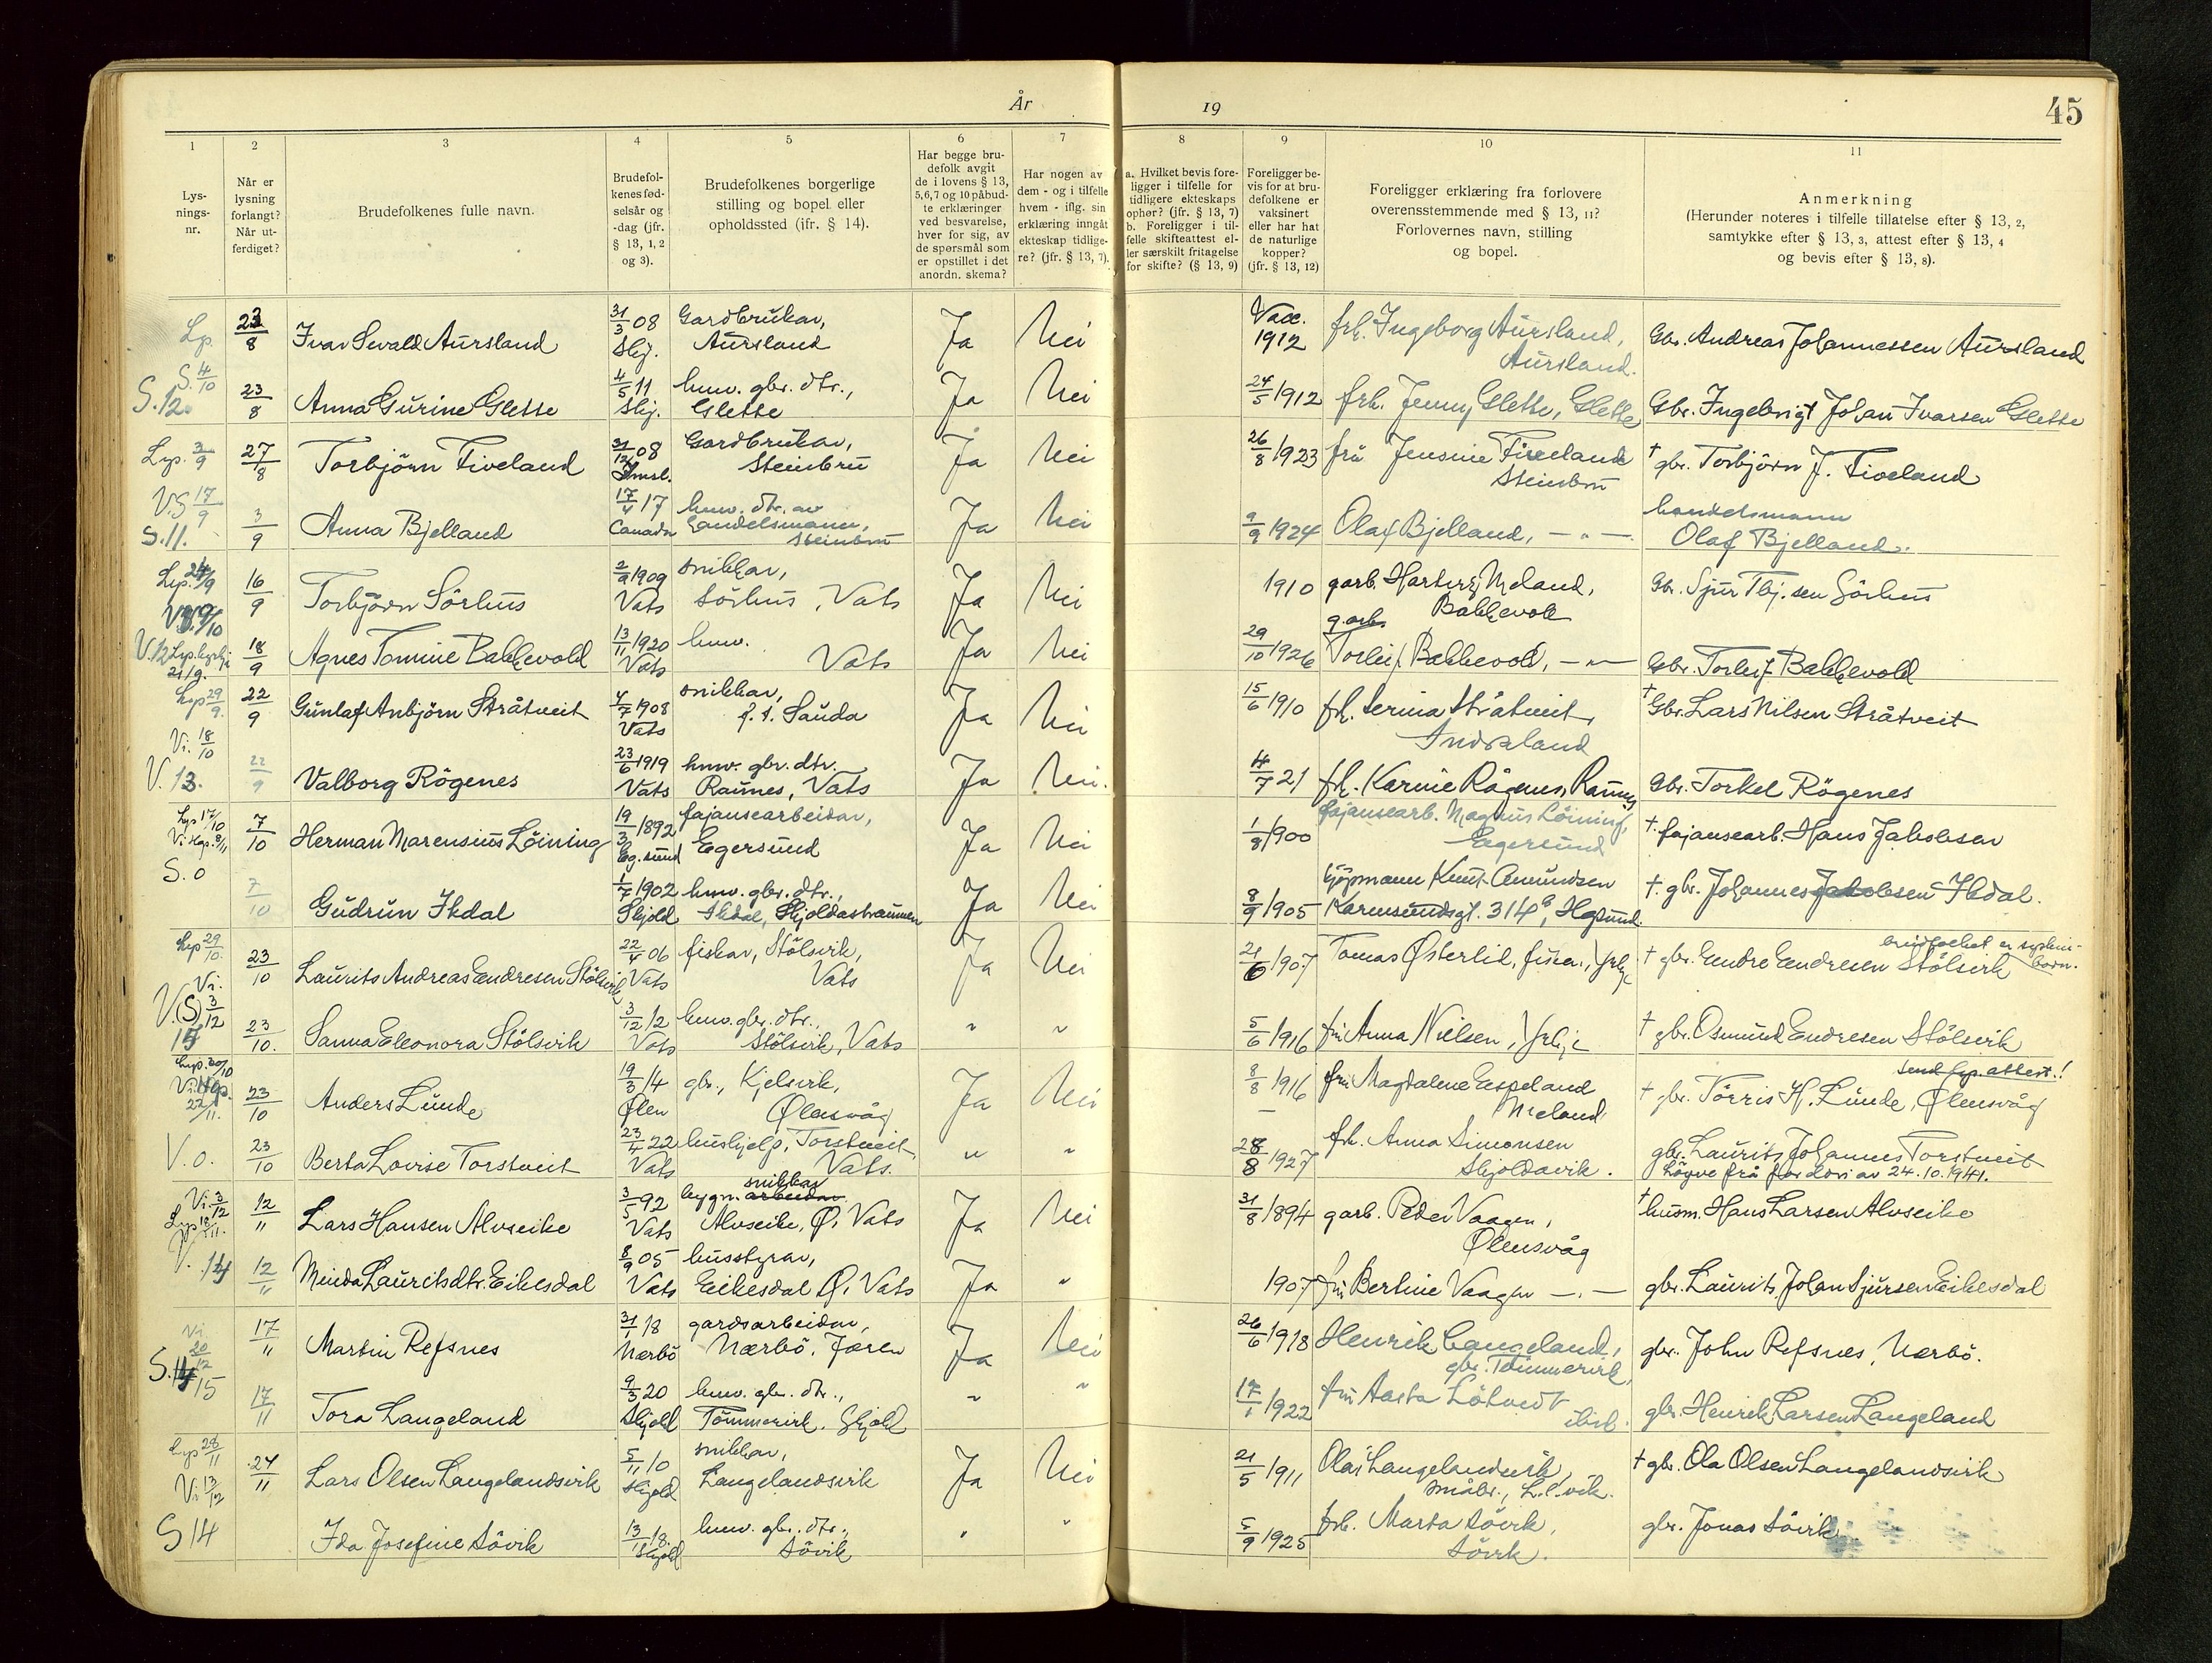 År 19
45
1 2 3 4 5 6 7 8 9 10 11
Lys-
nings-
nr.
Når er
lysning
forlangt?
Når ut-
ferdiget?
Brudefolkenes fulle navn.
Brudefol-
kenes fød-
selsår og
-dag (jfr.
§ 13, 1, 2
og 3).
Brudefolkenes borgerlige
stilling og bopel eller
opholdssted (jfr. § 14).
Har begge bru-
defolk avgit
de i lovens § 13,
5,6,7 og 10 påbud-
te erklæringer
ved besvarelse,
hver for sig, av
de spørsmål som
er opstillet i det
anordn. skema?
Har nogen av
dem - og i tilfelle
hvem - iflg. sin
erklæring inngåt
ekteskap tidlige-
re? (jfr. § 13, 7).
a. Hvilket bevis fore-
ligger i tilfelle for
tidligere ekteskaps
ophør? (jfr. § 13, 7)
b. Foreligger i til-
felle skifteattest el-
ler særskilt fritagelse
for skifte? (§ 13, 9)
Foreligger be-
vis for at bru-
defolkene er
vaksinert
eller har hat
de naturlige
kopper?
(jfr. § 13, 12)
Foreligger erklæring fra forlovere
overensstemmende med § 13, 11?
Forlovernes navn, stilling
og bopel.
Anmerkning
(Herunder noteres i tilfelle tillatelse efter § 13, 2,
samtykke efter § 13, 3, attest efter § 13, 4
og bevis efter § 13, 8).
Lp. 23/8 Ivar Sevald Aursland 31/3 08 Skj. Gardbrukar, Aursland Ja Nei Vacc. 1912 frk. Ingeborg Aursland, Aursland. Gbr. Andreas Johannessen Aursland
S. 4/10 S.12. 23/8 Anna Gurine Glette 4/5 11 Skj. hmv. gbr. dtr., Glette Ja Nei 24/5 1912 frk. Jenny Glette, Glette Gbr. Ingebrigt Johan Ivarsen Glette
Lyp. 3/9 27/8 Torbjörn Tiveland 31/12 08 Imsl. Gardbrukar, Steinbru Ja Nei 26/8 1923 fru Jensine Tiveland Steinbru † gbr. Torbjörn J. Tiveland
V.S 17/9 S.11. 3/9 Anna Bjelland 17/4 17 Canada hmv. dtr. av handelsmann, Steinbru Ja Nei 9/9 1924 Olaf Bjelland, — " — handelsmann Olaf Bjelland.
Lyp. 24/9 16/9 Torbjörn Sörhus 2/9 1909 Vats snikkar, Sörhus, Vats Ja Nei 1910 garb. Hartvig Meland, Bakkevold Gbr. Sjur Tbj.sen Sörhus
V.12 Lyp. 21/9. 18/9 Agnes Tomine Bakkevold 13/11 1920 Vats hmv. Vats Ja Nei 29/10 1926 g.arb. Torleif Bakkevold, — " — Gbr. Torleif Bakkevold
Lyp 29/9. Vi. 18/10 22/9 Gunlaf Anbjörn Stråtveit 4/7 1908 Vats snikkar, f. t. Sauda Ja Nei 15/6 1910 frk. Serina Stråtveit, Indraland † Gbr. Lars Nilsen Stråtveit
V. 13. 22/9 Valborg Rögenes 23/6 1919 Vats hmv. gbr. dtr. Raunes, Vats Ja Nei. 4/7 21 frk. Karine Rögenes, Raunes Gbr. Torkel Rögenes
Lyp 17/10 Vi. Hgs. 8/11 7/10 Herman Marensius Löining 19/3 1892 Eg.sund fajansearbeidar, Egersund Ja Nei 1/8 1900 fajansearb. Magnus Löining, Egersund † fajansearb. Hans Jakobsen
S. 0 7/10 Gudrun Ikdal 1/7 1902 Skjold hmv. gbr. dtr., Ikdal, Skjoldastraumen Ja Nei 8/9 1905 kjöpmann Knut Amundsen Karmsundsgt. 314, Hgsund †. gbr. Johannes Jakobsen Ikdal.
Lyp 29/10. Vi. 23/10 Laurits Andreas Endresen Stölsvik 22/4 06 Vats fiskar, Stölsvik, Vats Ja Nei 21/6 1907 Tomas Østerlid, † gbr. Endre Endresen Stölsvik brudfolket er syskinborn.
V.(S) 3/12 23/10. Sanna Eleonora Stölsvik 3/12 12 Vats hmv. gbr. dtr., Stölsvik, Vats " " 5/6 1916 fru Anna Nielsen, † gbr. Osmund Endresen Stölsvik
Lyp. 30/10 Vi. Hgs. 22/11. 23/10 Anders Lunde 19/3 14 Ølen gbr., Kjelsvik, Ølensvåg Ja Nei 8/8 1916 fru Magdalene Espeland Meland † gbr. Törris H. Lunde, Ølensvåg send lyp. attest.!
V. 0. 23/10 Berta Lovise Torstveit 23/4 22 Vats hushjelp, Torstveit, Vats. " " 28/8 1927 frk. Anna Simonsen Skjoldavik. gbr. Laurits Johannes Torstveit Löyve frå foreldri av 24.10.1941.
Vi. 3/12 Lyp 18/11. 12/11 Lars Hansen Alvseike 3/5 92 Vats bygn. arbeidar snikkar Alvseike, Ø. Vats Ja Nei 31/8 1894 garb. Peder Vaagen, Ølensvåg † husm. Hans Larsen Alvseike
V. 14 12/11 Minda Lauritsdtr. Eikesdal 8/9 05 Vats husstyrar, Eikesdal Ø. Vats Ja " 1907 fru Bertine Vaagen — " — gbr. Laurits Johan Sjursen Eikesdal
Vi 20/12 17/11 Martin Refsnes 31/1 18 Nærbö gardsarbeidar, Nærbö, Jæren Ja Nei 26/6 1918 Henrik Langeland, gbr. Tömmervik, gbr. John Refsnes, Nærbö.
S. 15 17/11 Tora Langeland 9/3 20 Skjold hmv. gbr. dtr., Tömmervik, Skjold " " 17/1 1922 fru Aasta Lötvedt ibid. gbr. Henrik Larsen Langeland
Lyp 28/11 Vi 13/12 24/11 Lars Olsen Langelandsvik 5/11 10 Skjold snikkar, Langelandsvik Ja Nei 21/5 1911 Olai Langelandsvik, småbr., L.l.vik. † gbr. Ola Olsen Langelandsvik
S 14 Ida Josefine Sövik 13/1 18. Skjold hmv. gbr. dtr., Sövik " " 5/9 1925 frk. Marta Sövik, Sövik. gbr. Jonas Sövik